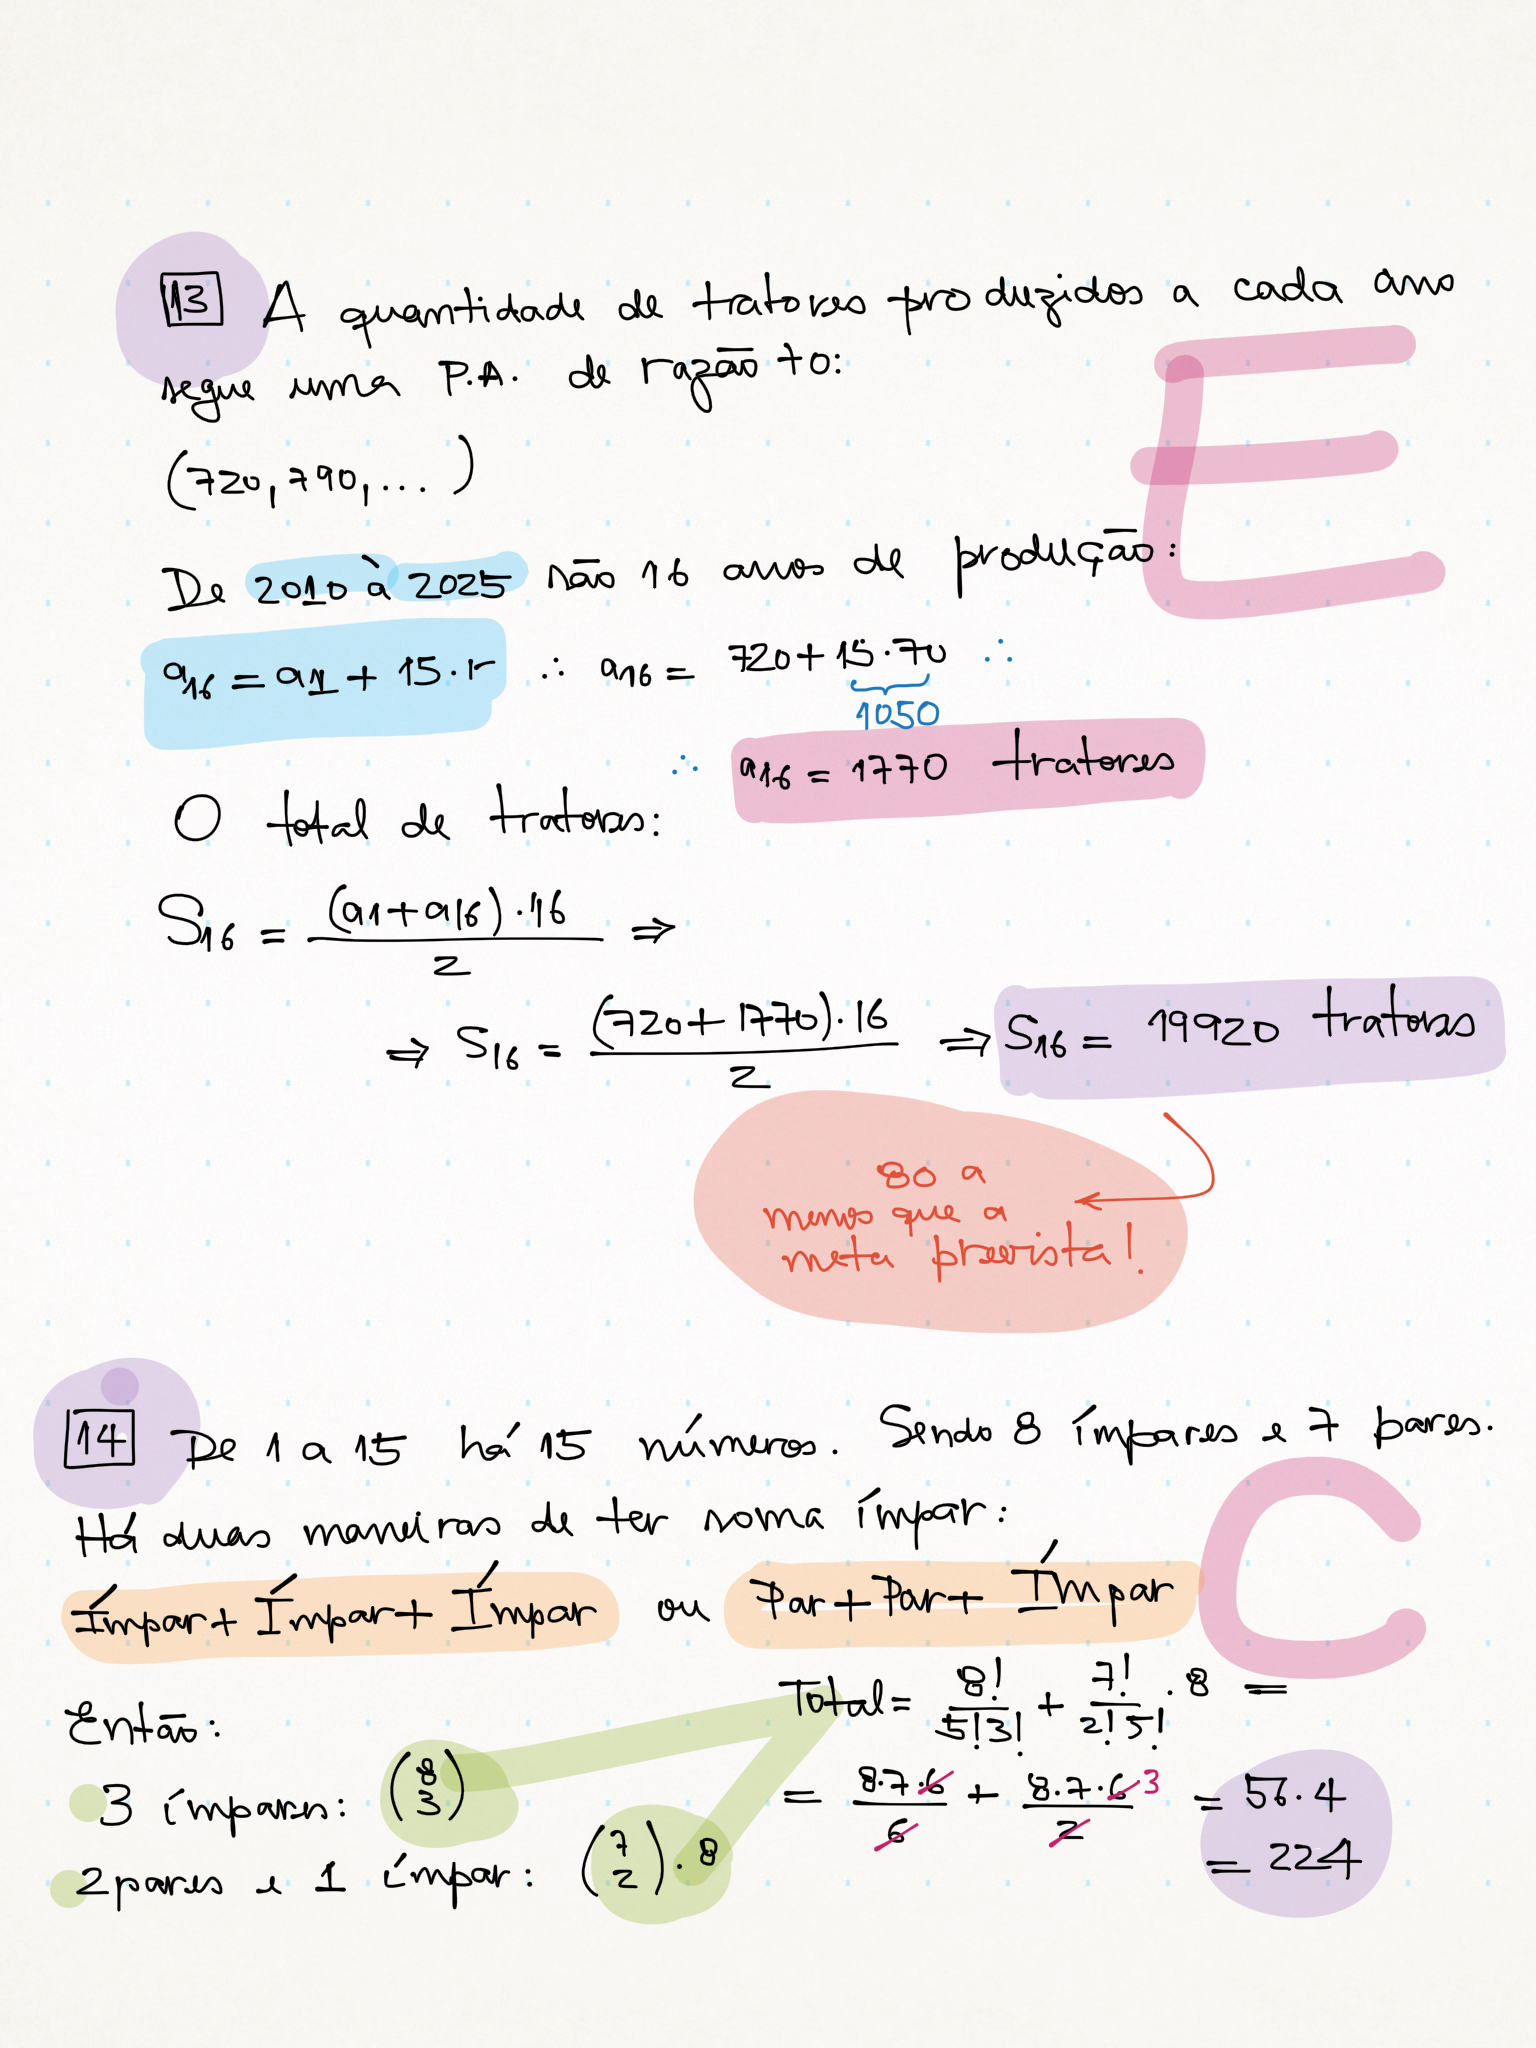 13 A quantidade de tratores produzidos a cada ano
segue uma P.A. de razão 70:
(720, 790, ... )
De 2010 à 2025 são 16 anos de produção:
E
a16 = a1 + 15.r ∴ a16 = 720 + 15.70 ∴
1050
∴ a16 = 1770 tratores
O total de tratores:
S16 = (a1 + a16).16 / 2 ⇒
⇒ S16 = (720 + 1770).16 / 2 ⇒ S16 = 19920 tratores
80 a
menos que a
meta prevista!
14 De 1 a 15 há 15 números. Sendo 8 ímpares e 7 pares.
Há duas maneiras de ter soma ímpar:
C
Ímpar + Ímpar + Ímpar ou Par + Par + Ímpar
Então:
3 ímpares: (8 3)
2 pares e 1 ímpar: (7 2) . 8
Total = 8! / 5!3! + 7! / 2!5! . 8 =
= 8.7.6 / 6 + 8.7.6 3 / 2 = 56.4
= 224